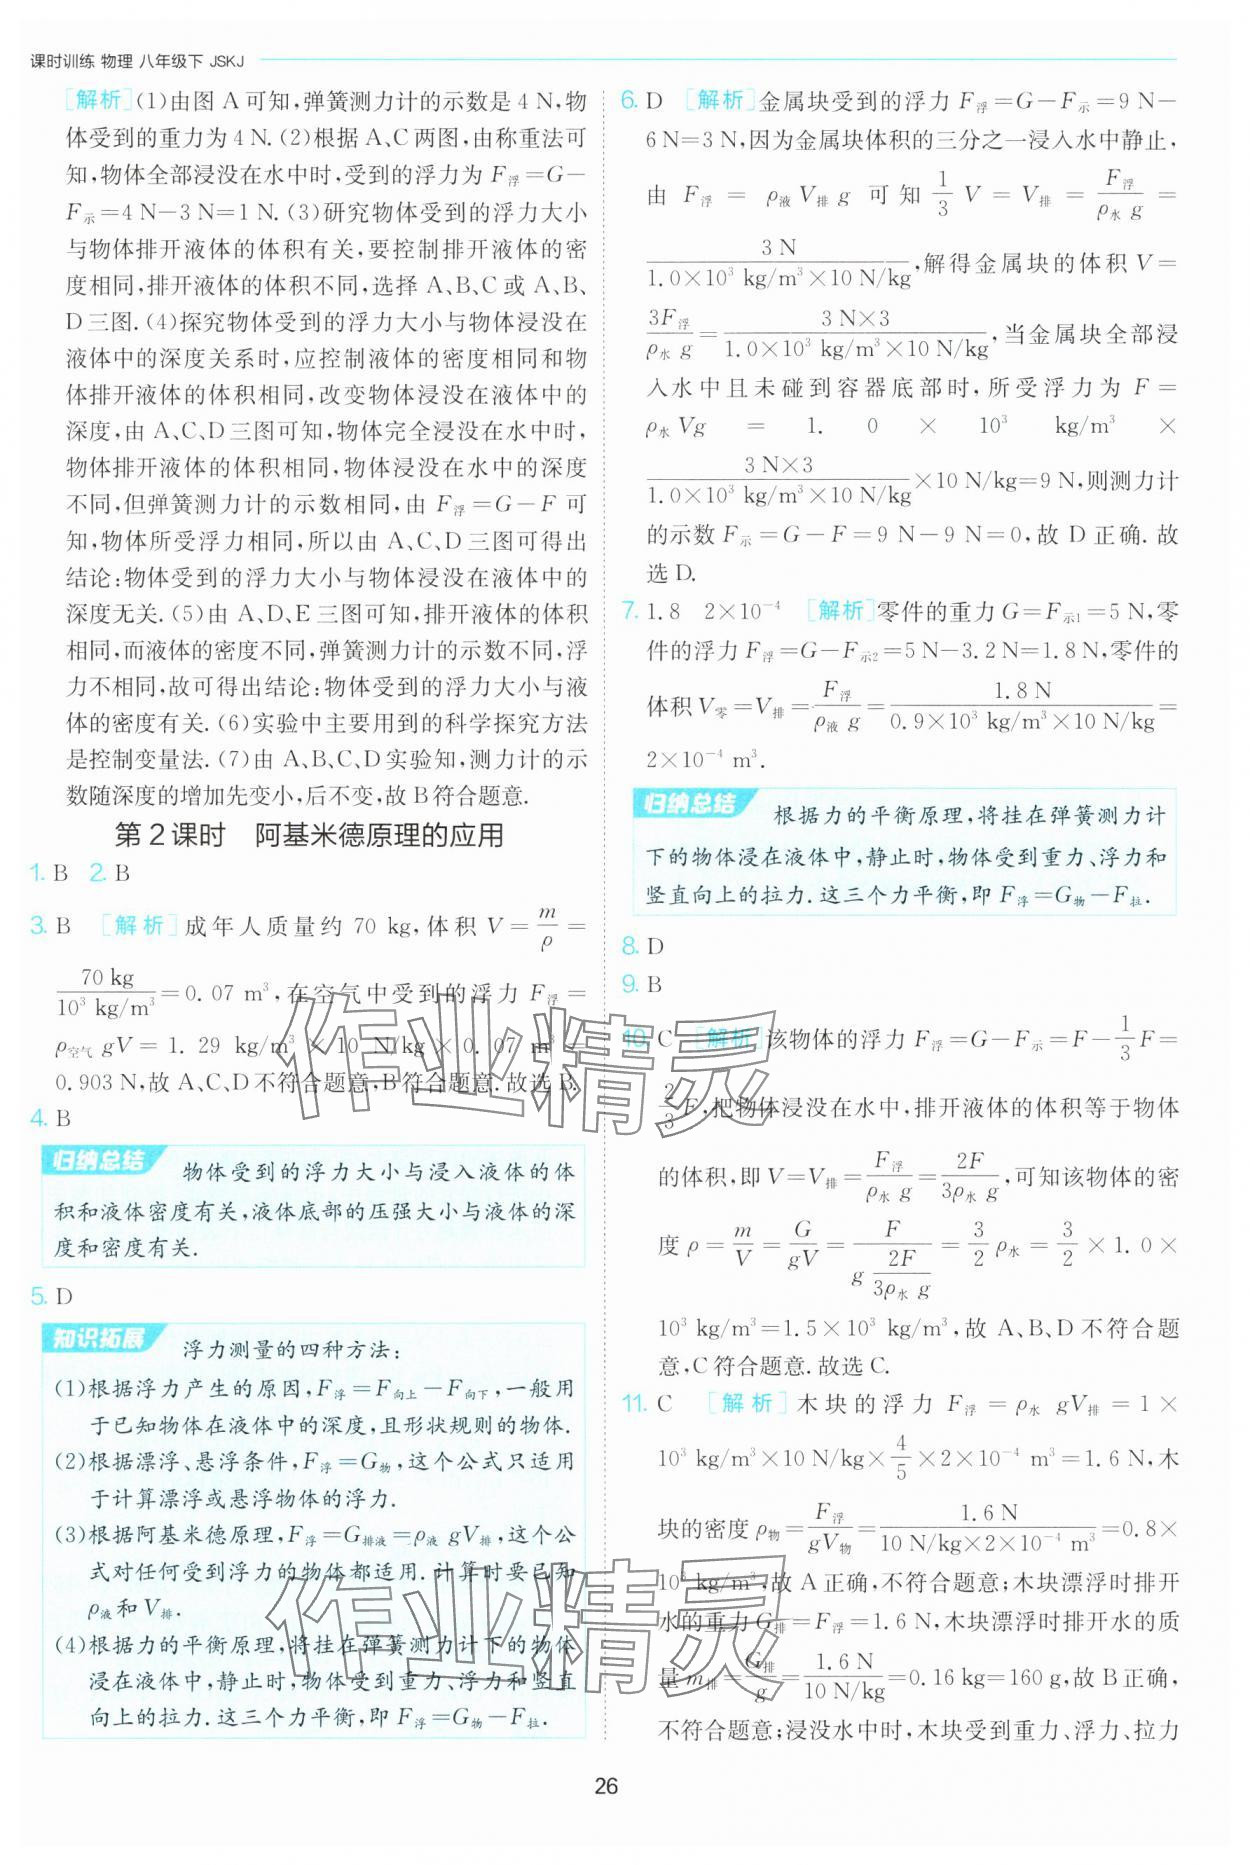 课时训练 物理 八年级下 JSKJ
[解析](1)由图 A 可知,弹簧测力计的示数是 4 N,物
体受到的重力为 4 N. (2)根据 A、C 两图,由称重法可
知,物体全部浸没在水中时,受到的浮力为 F浮=G-
F示=4 N-3 N=1 N. (3)研究物体受到的浮力大小
与物体排开液体的体积有关,要控制排开液体的密
度相同,排开液体的体积不同,选择 A、B、C 或 A、B、
D 三图. (4)探究物体受到的浮力大小与物体浸没在
液体中的深度关系时,应控制液体的密度相同和物
体排开液体的体积相同,改变物体浸没在液体中的
深度,由 A、C、D 三图可知,物体完全浸没在水中时,
物体排开液体的体积相同,物体浸没在水中的深度
不同,但弹簧测力计的示数相同,由 F浮=G-F 可
知,物体所受浮力相同,所以由 A、C、D 三图可得出
结论:物体受到的浮力大小与物体浸没在液体中的
深度无关. (5)由 A、D、E 三图可知,排开液体的体积
相同,而液体的密度不同,弹簧测力计的示数不同,浮
力不相同,故可得出结论:物体受到的浮力大小与液
体的密度有关. (6)实验中主要用到的科学探究方法
是控制变量法. (7)由 A、B、C、D 实验知,测力计的示
数随深度的增加先变小,后不变,故 B 符合题意.
第 2 课时 阿基米德原理的应用
1. B 2. B
3. B [解析]成年人质量约 70 kg,体积 V=m/ρ=
70 kg/10³ kg/m³=0.07 m³,在空气中受到的浮力 F浮=
ρ空气 gV=1.29 kg/m³×10 N/kg×0.07 m³=
0.903 N,故 A、C、D 不符合题意,B 符合题意.故选 B.
4. B
归纳总结 物体受到的浮力大小与浸入液体的体
积和液体密度有关,液体底部的压强大小与液体的深
度和密度有关.
5. D
知识拓展 浮力测量的四种方法:
(1)根据浮力产生的原因,F浮=F向上-F向下,一般用
于已知物体在液体中的深度,且形状规则的物体.
(2)根据漂浮、悬浮条件,F浮=G物,这个公式只适用
于计算漂浮或悬浮物体的浮力.
(3)根据阿基米德原理,F浮=G排液=ρ液 gV排,这个公
式对任何受到浮力的物体都适用.计算时要已知
ρ液和 V排.
(4)根据力的平衡原理,将挂在弹簧测力计下的物体
浸在液体中,静止时,物体受到重力、浮力和竖直
向上的拉力.这三个力平衡,即 F浮=G物-F拉.
6. D [解析]金属块受到的浮力 F浮=G-F示=9 N-
6 N=3 N,因为金属块体积的三分之一浸入水中静止,
由 F浮=ρ液 V排 g 可知 1/3 V=V排=F浮/ρ水 g=
3 N/1.0×10³ kg/m³×10 N/kg,解得金属块的体积 V=
3F浮/ρ水 g=3 N×3/1.0×10³ kg/m³×10 N/kg,当金属块全部浸
入水中且未碰到容器底部时,所受浮力为 F=
ρ水 Vg=1.0×10³ kg/m³×
3 N×3/1.0×10³ kg/m³×10 N/kg×10 N/kg=9 N,则测力计
的示数 F示=G-F=9 N-9 N=0,故 D 正确.故
选 D.
7. 1.8 2×10⁻⁴ [解析]零件的重力 G=F示1=5 N,零
件的浮力 F浮=G-F示2=5 N-3.2 N=1.8 N,零件的
体积 V零=V排=F浮/ρ液 g=1.8 N/0.9×10³ kg/m³×10 N/kg=
2×10⁻⁴ m³.
归纳总结 根据力的平衡原理,将挂在弹簧测力计
下的物体浸在液体中,静止时,物体受到重力、浮力和
竖直向上的拉力.这三个力平衡,即 F浮=G物-F拉.
8. D
9. B
10. C [解析]该物体的浮力 F浮=G-F示=F-1/3 F=
2/3 F,把物体浸没在水中,排开液体的体积等于物体
的体积,即 V=V排=F浮/ρ水 g=2F/3ρ水 g,可知该物体的密
度 ρ=m/V=G/gV=F/(g 2F/3ρ水 g)=3/2 ρ水=3/2×1.0×
10³ kg/m³=1.5×10³ kg/m³,故 A、B、D 不符合题
意,C 符合题意.故选 C.
11. C [解析]木块的浮力 F浮=ρ水 gV排=1×
10³ kg/m³×10 N/kg×4/5×2×10⁻⁴ m³=1.6 N,木
块的密度 ρ物=F浮/gV物=1.6 N/10 N/kg×2×10⁻⁴ m³=0.8×
10³ kg/m³,故 A 正确,不符合题意;木块漂浮时排开
水的重力 G排=F浮=1.6 N,木块漂浮时排开水的质
量 m排=G排/g=1.6 N/10 N/kg=0.16 kg=160 g,故 B 正确,
不符合题意;浸没水中时,木块受到重力、浮力、拉力
作业精灵
作业精灵
26